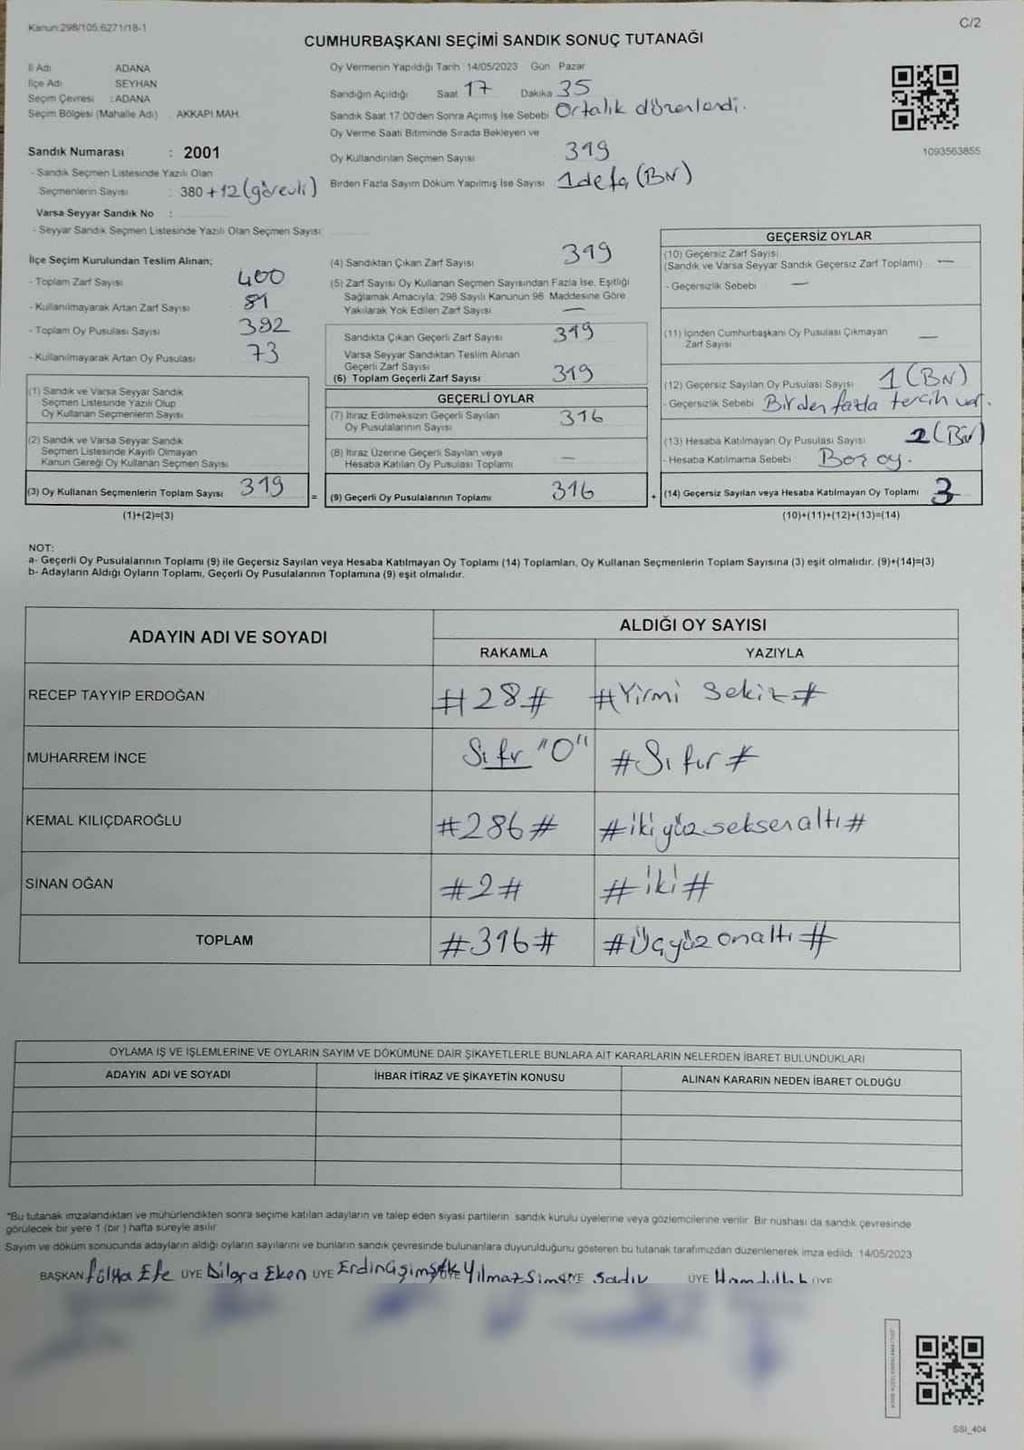 Kanun:298/105.6271/18-1
C/2
CUMHURBAŞKANI SEÇİMİ SANDIK SONUÇ TUTANAĞI
İl Adı ADANA
İlçe Adı SEYHAN
Seçim Çevresi : ADANA
Seçim Bölgesi (Mahalle Adı) AKKAPI MAH.
Sandık Numarası : 2001
- Sandık Seçmen Listesinde Yazılı Olan
Seçmenlerin Sayısı : 380 +12 (görevli)
Varsa Seyyar Sandık No :
- Seyyar Sandık Seçmen Listesinde Yazılı Olan Seçmen Sayısı
Oy Vermenin Yapıldığı Tarih 14/05/2023 Gün Pazar
Sandığın Açıldığı Saat 17 Dakika 35
Sandık Saat 17:00'den Sonra Açımış İse Sebebi Ortalık düzenlendi.
Oy Verme Saati Bitiminde Sırada Bekleyen ve
Oy Kullandırılan Seçmen Sayısı 319
Birden Fazla Sayım Döküm Yapılmış İse Sayısı 1defa (BN)
1093563855
İlçe Seçim Kurulundan Teslim Alınan;
- Toplam Zarf Sayısı 400
- Kullanılmayarak Artan Zarf Sayısı 81
- Toplam Oy Pusulası Sayısı 392
- Kullanılmayarak Artan Oy Pusulası 73
(1) Sandık ve Varsa Seyyar Sandık
Seçmen Listesinde Yazılı Olup
Oy Kullanan Seçmenlerin Sayısı
(2) Sandık ve Varsa Seyyar Sandık
Seçmen Listesinde Kayıtlı Olmayan
Kanun Gereği Oy Kullanan Seçmen Sayısı
(3) Oy Kullanan Seçmenlerin Toplam Sayısı 319
=
(1)+(2)=(3)
(4) Sandıktan Çıkan Zarf Sayısı 319
(5) Zarf Sayısı Oy Kullanan Seçmen Sayısından Fazla İse, Eşitliği
Sağlamak Amacıyla, 298 Sayılı Kanunun 98. Maddesine Göre
Yakılarak Yok Edilen Zarf Sayısı —
Sandıkta Çıkan Geçerli Zarf Sayısı 319
Varsa Seyyar Sandıktan Teslim Alınan
Geçerli Zarf Sayısı
(6) Toplam Geçerli Zarf Sayısı 319
GEÇERLİ OYLAR
(7) İtiraz Edilmeksizin Geçerli Sayılan
Oy Pusulalarının Sayısı 316
(8) İtiraz Üzerine Geçerli Sayılan veya
Hesaba Katılan Oy Pusulası Toplamı —
(9) Geçerli Oy Pusulalarının Toplamı 316
+
GEÇERSİZ OYLAR
(10) Geçersiz Zarf Sayısı
(Sandık ve Varsa Seyyar Sandık Geçersiz Zarf Toplamı) —
- Geçersizlik Sebebi —
(11) İçinden Cumhurbaşkanı Oy Pusulası Çıkmayan
Zarf Sayısı —
(12) Geçersiz Sayılan Oy Pusulası Sayısı 1 (BN)
- Geçersizlik Sebebi Birden fazla tercih var.
(13) Hesaba Katılmayan Oy Pusulası Sayısı 2 (BN)
- Hesaba Katılmama Sebebi Boş oy.
(14) Geçersiz Sayılan veya Hesaba Katılmayan Oy Toplamı 3
(10)+(11)+(12)+(13)=(14)
NOT:
a- Geçerli Oy Pusulalarının Toplamı (9) ile Geçersiz Sayılan veya Hesaba Katılmayan Oy Toplamı (14) Toplamları, Oy Kullanan Seçmenlerin Toplam Sayısına (3) eşit olmalıdır. (9)+(14)=(3)
b- Adayların Aldığı Oyların Toplamı, Geçerli Oy Pusulalarının Toplamına (9) eşit olmalıdır.
ADAYIN ADI VE SOYADI
ALDIĞI OY SAYISI
RAKAMLA YAZIYLA
RECEP TAYYİP ERDOĞAN #28# #Yirmi Sekiz#
MUHARREM İNCE Sıfır "0" #Sıfır#
KEMAL KILIÇDAROĞLU #286# #ikiyüzseksenaltı#
SİNAN OĞAN #2# #iki#
TOPLAM #316# #Üçyüzonaltı#
OYLAMA İŞ VE İŞLEMLERİNE VE OYLARIN SAYIM VE DÖKÜMÜNE DAİR ŞİKAYETLERLE BUNLARA AİT KARARLARIN NELERDEN İBARET BULUNDUKLARI
ADAYIN ADI VE SOYADI İHBAR İTİRAZ VE ŞİKAYETİN KONUSU ALINAN KARARIN NEDEN İBARET OLDUĞU
*Bu tutanak imzalandıktan ve mühürlendikten sonra seçime katılan adayların ve talep eden siyasi partilerin sandık kurulu üyelerine veya gözlemcilerine verilir. Bir nüshası da sandık çevresinde
görülecek bir yere 1 (bir ) hafta süreyle asılır.
Sayım ve döküm sonucunda adayların aldığı oyların sayılarını ve bunların sandık çevresinde bulunanlara duyurulduğunu gösteren bu tutanak tarafımızdan düzenlenerek imza edildi. 14/05/2023
BAŞKAN Fulya Efe ÜYE Dilara Eken ÜYE Erdinç Şimşek ÜYE Yılmaz Şimşek ÜYE Sadık ÜYE Hamdullah ÜYE
SSI_404